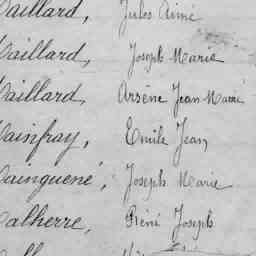 aillard, Jules Aimé
aillard, Joseph Marie
aillard, Arsène Jean Marie
ainfray, Emile Jean
ainguené, Joseph Marie
alherre, Réné Joseph